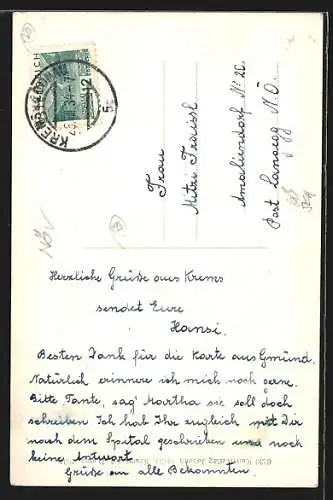 20
ÖSTERREICH
KREMS
12
Frau
Mitzi Fraissl
Amaliendorf N° 20.
Post Langegg N.Ö.
NÖ V
Herzliche Grüße aus Krems
sendet Eure
Hansi.
Besten Dank für die Karte aus Gmünd.
Natürlich erinnere ich mich noch gerne.
Bitte Tante, sag' Martha sie soll doch
schreiben Ich hab Ihr zugleich mit Dir
nach dem Spital geschrieben und noch
keine Antwort
Grüße an alle Bekannten.